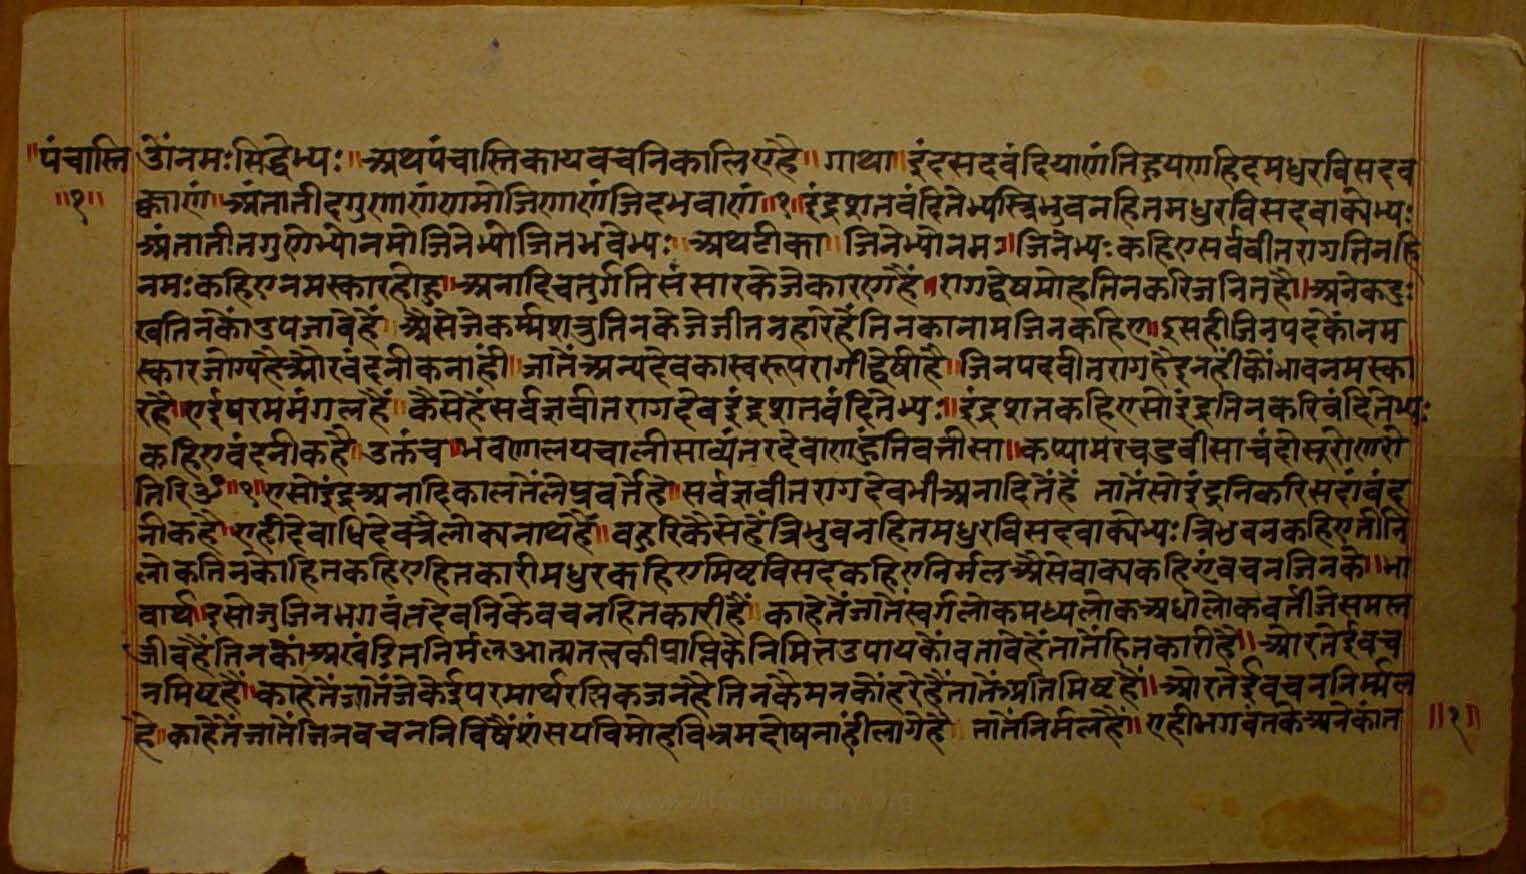 ॥पंचास्ति ॐनमःसिद्धेभ्यः॥ अथपंचास्तिकायवचनिकालिएहै॥ गाथा॥ इंदसदवंदियाणंतिहुयणहिदमधुरविसदव
॥१॥ क्काणं॥ अंतातीदगुणाणंणमोजिणाणंजिदभवाणं॥१॥इंद्रशतवंदितेभ्यस्त्रिभुवनहितमधुरविसदवाक्येभ्यः
अंतातीतगुणेभ्योनमोजिनेभ्योजितभवेभ्यः॥ अथटीका॥ जिनेभ्योनमः॥जिनेभ्यःकहिएसर्वबीतरागतिनहि
नमःकहिएनमस्कारहोहु॥अनादिचतुर्गतिसंसारकेजेकारणहैं॥रागद्वेषमोहतिनकरिजनितहै॥अनेकदुः
खतिनकोंउपजावेहैं॥ अैसेजेकर्म्मशत्रुतिनकेजेजीतनहारेहैंतिनकानामजिनकहिए॥इसहीजिनपदकोंनम
स्कारजोग्यहैऔरवंदनीकनांही॥ जातैंअन्यदेवकास्वरूपरागीद्वेषीहै॥ जिनपदवीतरागहैइनहींकोंभावनमस्का
रहै॥एईपरममंगलहैं॥ कैसेहैंसर्वज्ञवीतरागदेवइंद्रशतवंदितेभ्यः॥इंद्रशतकहिएसोइंद्रतिनकरिवंदितेभ्यः
कहिएवंदनीकहै॥उक्तंच॥भवणालयचालीसाव्यंतरदेवाणहुंतिबत्तीसा॥कप्पामरचउवीसाचंदोसूरोणरो
तिरिऊ॥१॥एसोइंद्रअनादिकालतेंलेप्रवर्त्तेहै॥सर्वज्ञवीतरागदेवभीअनादितैंहैं तातेंसोइंद्रनिकरिसदांवंद
नीकहै॥एहीदेवाधिदेवत्रैलोक्यनाथहैं॥बहुरिकैसेहैंत्रिभुवनहितमधुरविसदवाक्येभ्यःत्रिभुवनकहिएतीनि
लोकतिनकोहितकहिएहितकारीमधुरकहिएमिष्टविसदकहिएनिर्मलअैसेवाक्यकहिएंवचनजिनके॥भा
वार्थ॥इसोजुजिनभगवंतदेवतिकेवचनहितकारीहैं॥ काहेतेंजातेंस्वर्गलोकमध्यलोकअधोलोकवर्तीजेसमस्त
जीवहैंतिनकोंअखंडितनिर्मलआत्मतत्वकीप्राप्तिकैनिमित्तउपायकोंवतावेहैंतातेंहितकारीहै॥ओरतेईवच
नमिष्टहैं॥काहेतेंजातेंजेकेईपरमार्थरसिकजनहैतिनकैमनकोंहरेहैंतातेंअतिमिष्टहैं॥ओरतेईवचननिर्म्मल
हे॥काहेतेंजातेंजिनवचननिविषैंसंसयविमोहविभ्रमदोषनांहीलागेहै॥ तातेंनिर्मलहैं॥एहीभगवंतकेअनेकांत ॥१॥
www.vitraglibrary.org